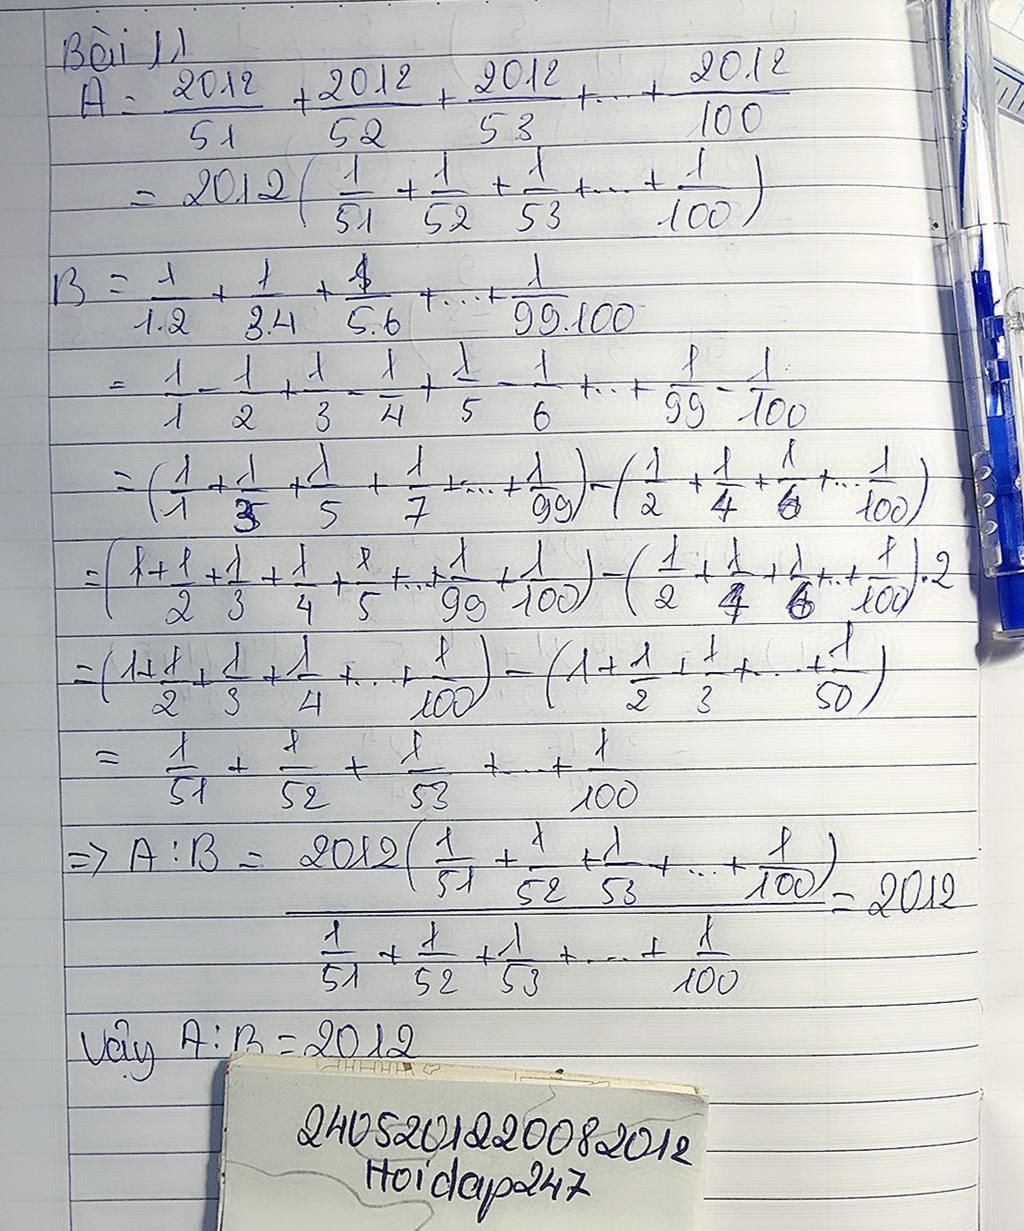 Bài 11
A = 2012/51 + 2012/52 + 2012/53 + ... + 2012/100
= 2012(1/51 + 1/52 + 1/53 + ... + 1/100)
B = 1/1.2 + 1/3.4 + 1/5.6 + ... + 1/99.100
= 1/1 - 1/2 + 1/3 - 1/4 + 1/5 - 1/6 + ... + 1/99 - 1/100
= (1/1 + 1/3 + 1/5 + 1/7 + ... + 1/99) - (1/2 + 1/4 + 1/6 + ... 1/100)
= (1 + 1/2 + 1/3 + 1/4 + 1/5 + ... + 1/99 + 1/100) - (1/2 + 1/4 + 1/6 + ... + 1/100).2
= (1 + 1/2 + 1/3 + 1/4 + ... + 1/100) - (1 + 1/2 + 1/3 + ... + 1/50)
= 1/51 + 1/52 + 1/53 + ... + 1/100
=> A : B = 2012(1/51 + 1/52 + 1/53 + ... + 1/100) / 1/51 + 1/52 + 1/53 + ... + 1/100 = 2012
Vậy A : B = 2012
2405201220082012
Hoidap247